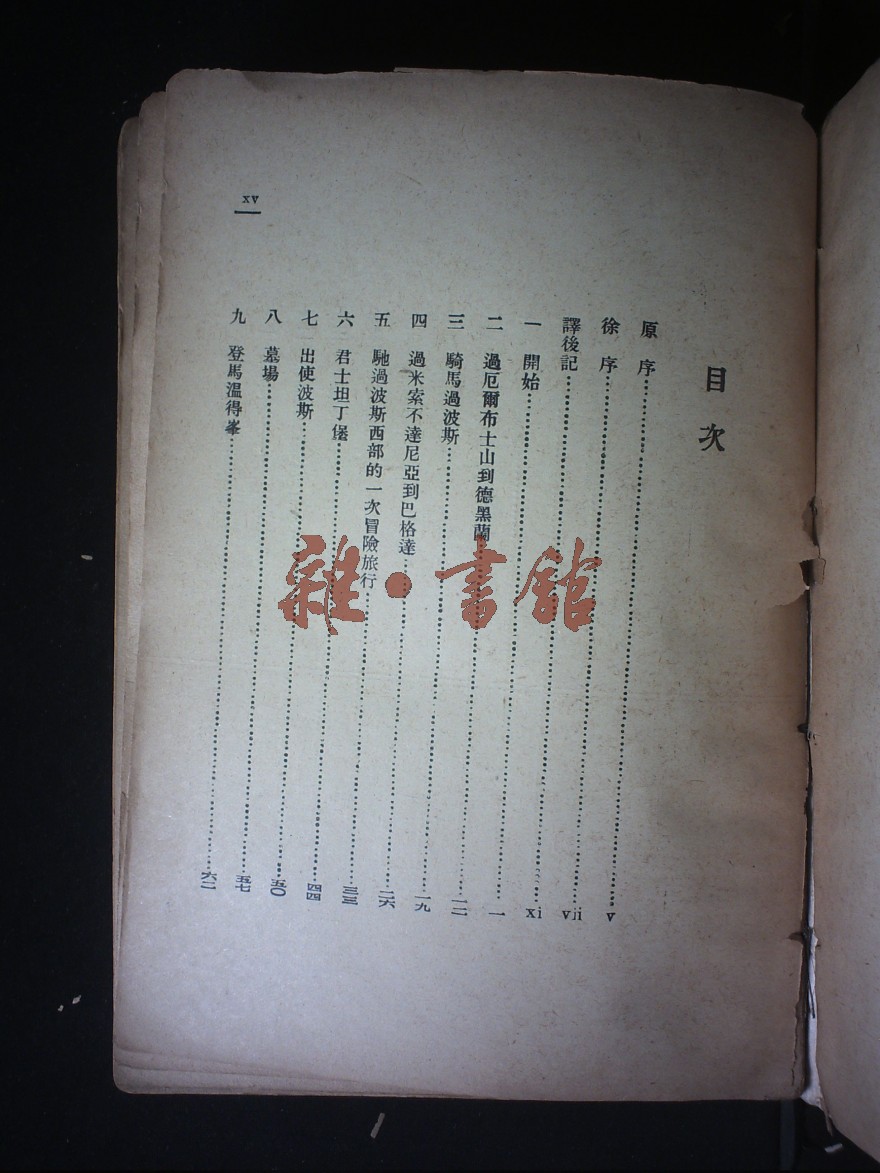 目次
原序 v
徐序 vii
譯後記 xi
一 開始 一
二 過厄爾布士山到德黑蘭 一二
三 騎馬過波斯 一九
四 過米索不達尼亞到巴格達 二六
五 馳過波斯西部的一次冒險旅行 三三
六 君士坦丁堡 四四
七 出使波斯 五〇
八 墓場 五七
九 登馬溫得峯 六二
xv
雜·書館